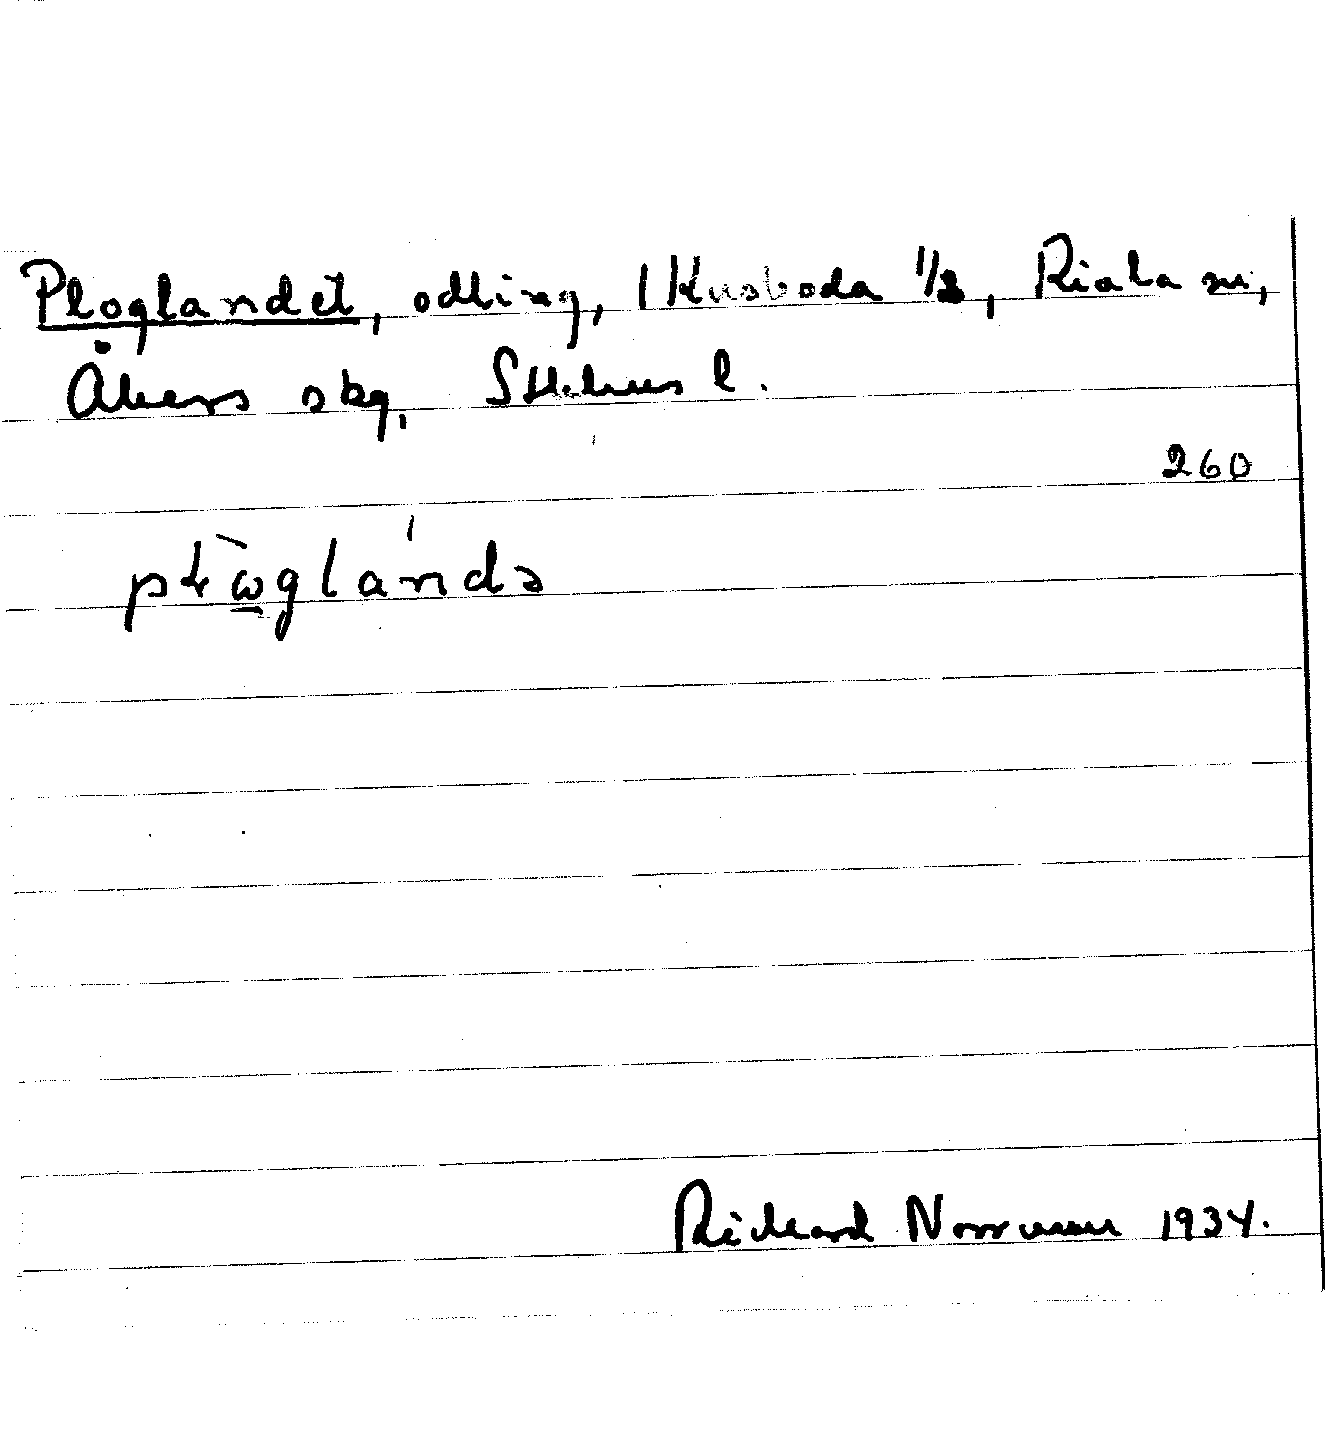 Ploglandet, odling, Kusboda 1/2, Riala sn,
Åkers skg, Sthlms l.
260
pɫògländə
Richard Norrman 1934.